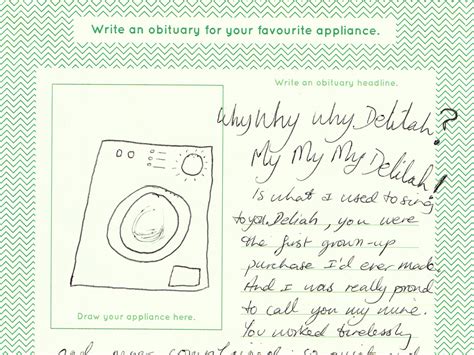 Write an obituary for your favourite appliance.
Write an obituary headline.
Why Why Why Delilah?
My My My Delilah!
Is what I used to sing
to you. Deliah, you were
the first grown-up
purchase I'd ever made.
And I was really proud
to call you my mine.
You worked tirelessly
Draw your appliance here.
and never complained